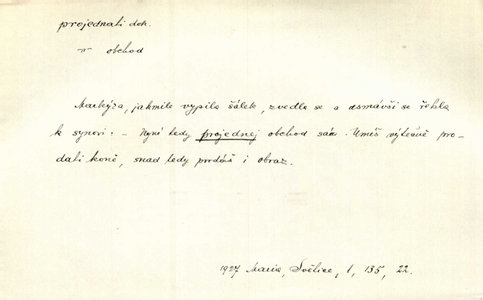 projednati dok.
v obchod
Markýza, jakmile vypila šálek, zvedla se a usmávši se řekla
k synovi: – Nyní tedy projednej obchod sám. Umíš výtečně pro-
dati koně, snad tedy prodáš i obraz.
1927 Maria, Světice, I, 135, 22.